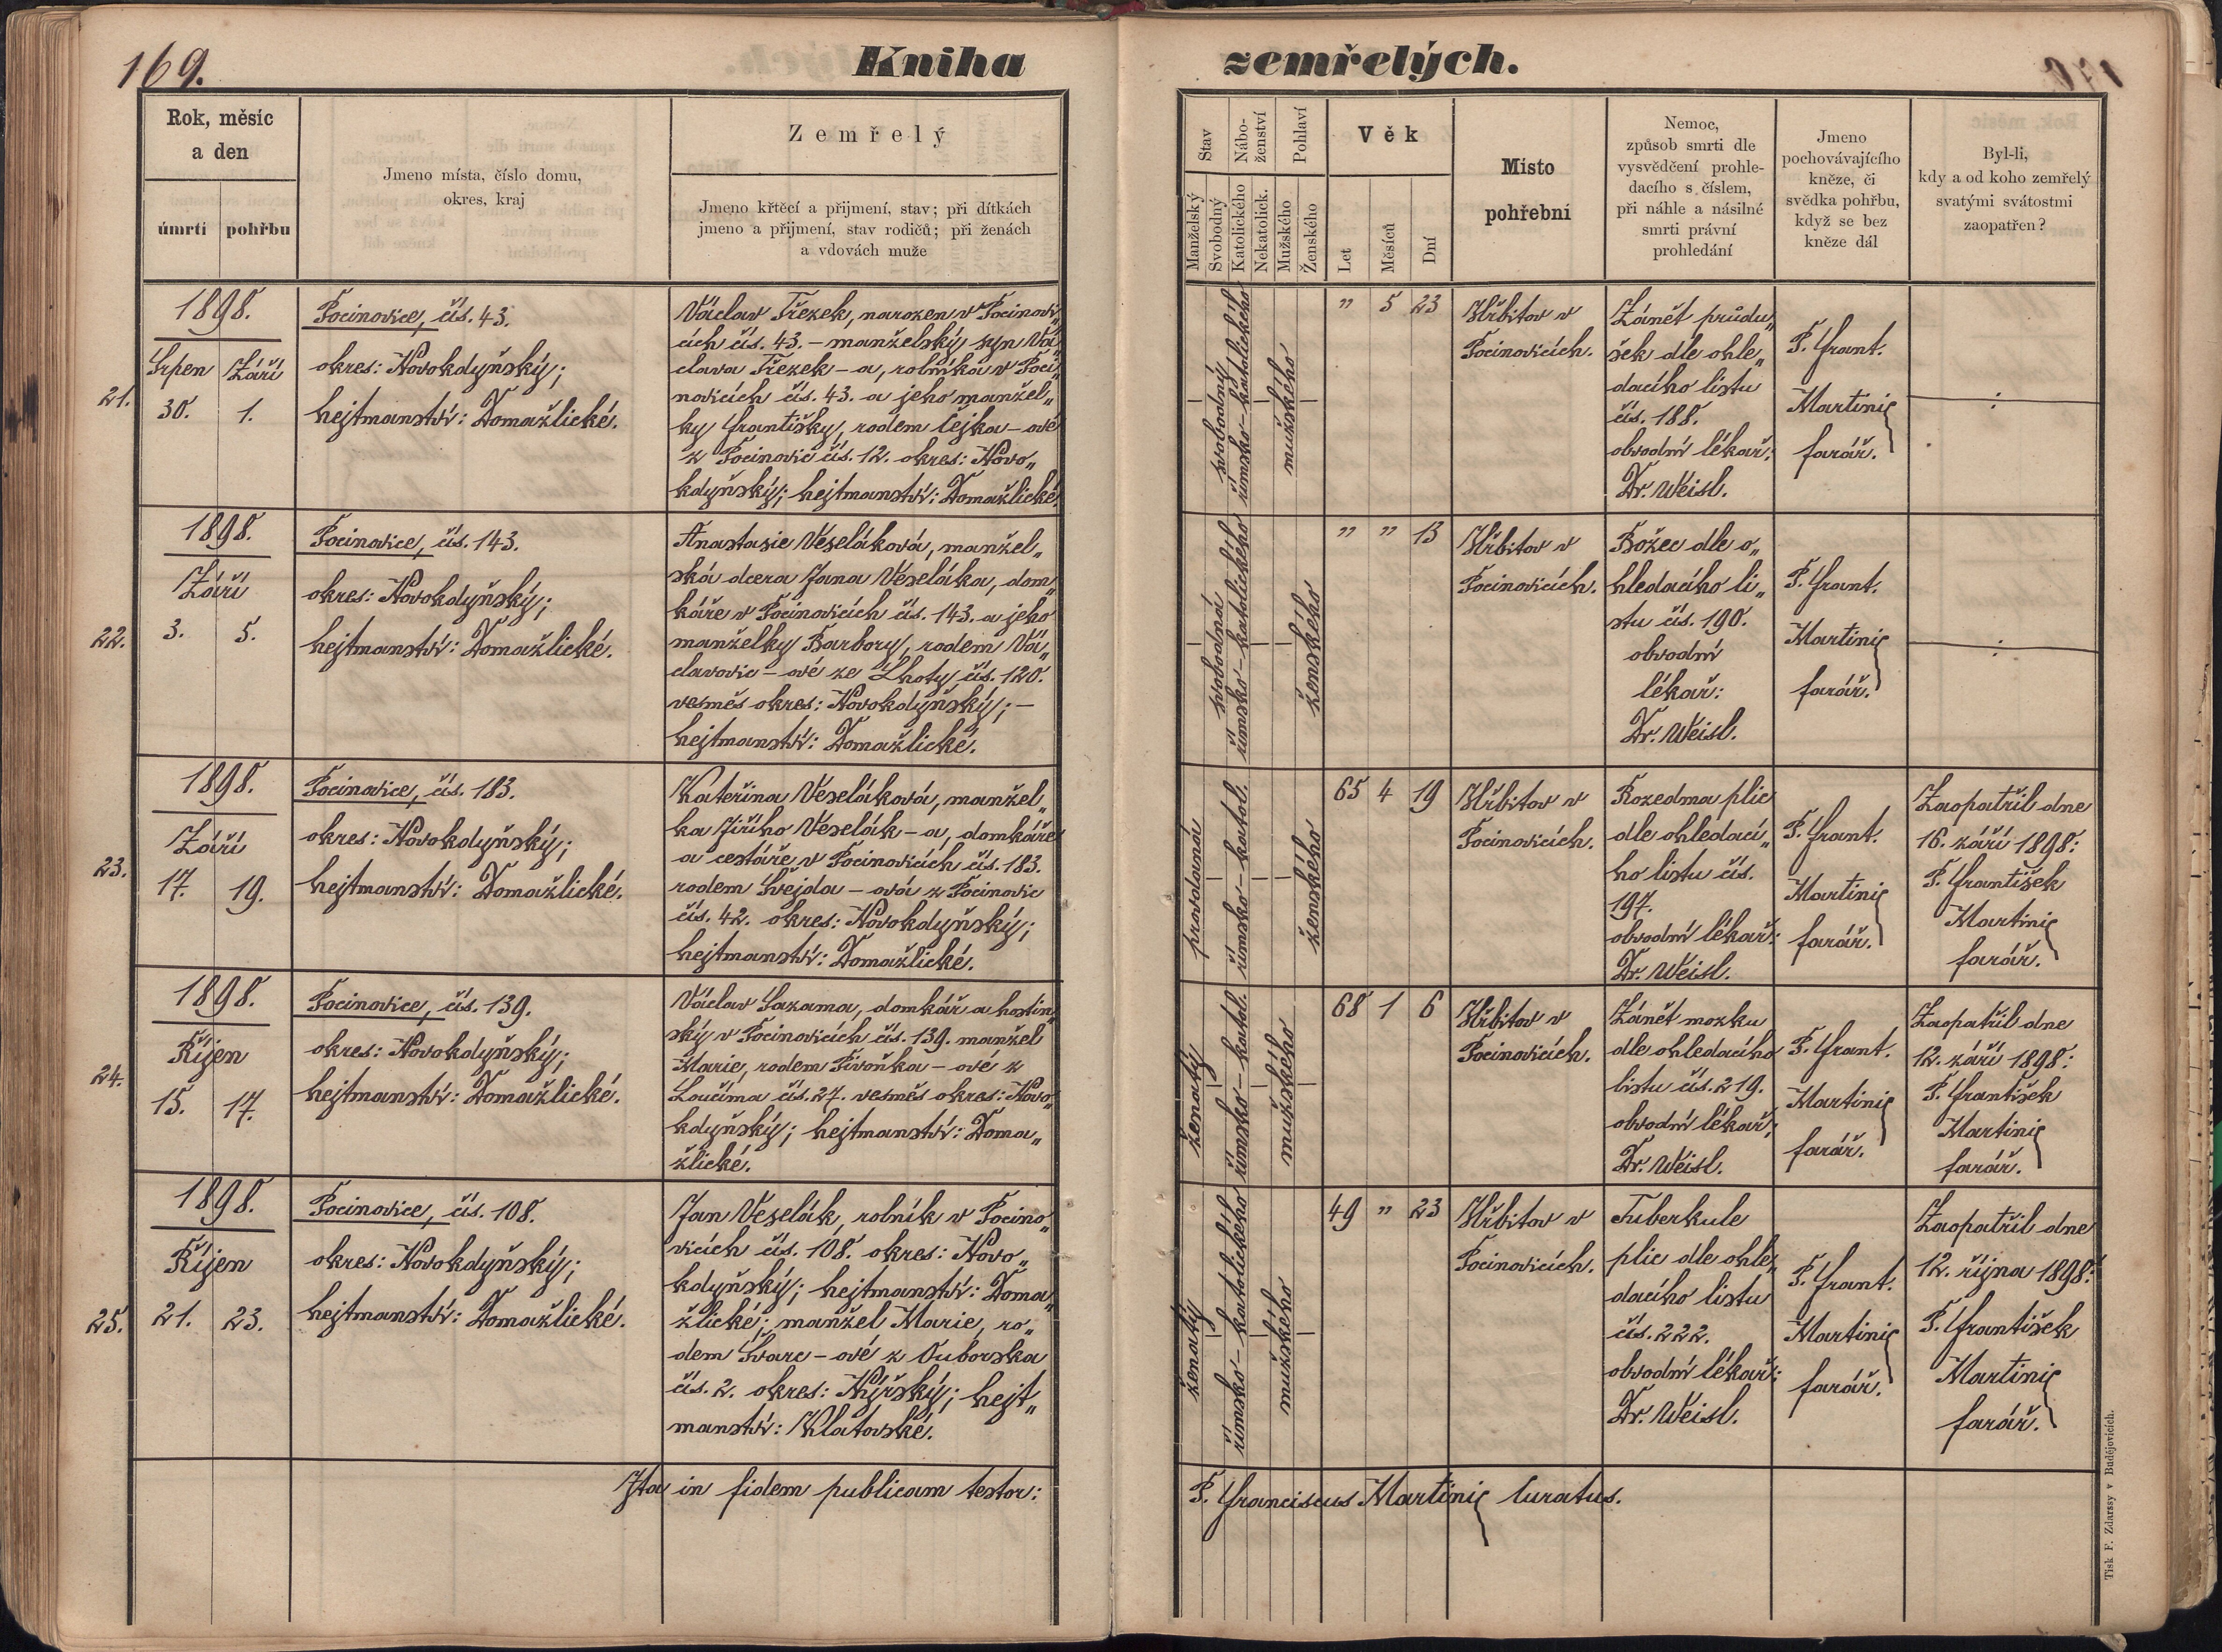 169.
Kniha
Rok, měsíc
a den
úmrtí
pohřbu
Jmeno místa, číslo domu,
okres, kraj
Zemřelý
Jmeno křtěcí a přijmení, stav; při dítkách
jmeno a přijmení, stav rodičů; při ženách
a vdovách muže
21.
1898.
Srpen Září
30. 1.
Pocinovice, čís. 43.
okres: Novokdyňský;
hejtmanství: Domažlické.
Václav Třezek, narozen v Pocinovi„
cích čís. 43. – manželský syn Vá„
clava Třezek – a, rolníka v Poci„
novicích čís. 43. a jeho manžel„
ky Františky, rodem Čejka – ové
z Pocinovic čís. 12. okres: Novo„
kdyňský; hejtmanství: Domažlické.
22.
1898.
Září
3. 5.
Pocinovice, čís. 143.
okres: Novokdyňský;
hejtmanství: Domažlické.
Anastasie Veseláková, manžel„
ská dcera Jana Veseláka, dom„
káře v Pocinovicích čís. 143. a jeho
manželky Barbory, rodem Vá„
clavovic – ové ze Lhoty čís. 120.
vesměs okres: Novokdyňský; –
hejtmanství: Domažlické.
23.
1898.
Září
17. 19.
Pocinovice, čís. 183.
okres: Novokdyňský;
hejtmanství: Domažlické.
Kateřina Veseláková, manžel„
ka Jiřího Veselák – a, domkáře
a cestáře v Pocinovicích čís. 183.
rodem Švejda – ová z Pocinovic
čís. 42. okres: Novokdyňský;
hejtmanství: Domažlické.
24.
1898.
Říjen
15. 17.
Pocinovice, čís. 139.
okres: Novokdyňský;
hejtmanství: Domažlické.
Václav Sazama, domkář a hostin„
ský v Pocinovicích čís. 139. manžel
Marie, rodem Pivoňka – ové z
Loučima čís. 27. vesměs okres: Novo„
kdyňský; hejtmanství: Doma„
žlické.
25.
1898.
Říjen
21. 23.
Pocinovice, čís. 108.
okres: Novokdyňský;
hejtmanství: Domažlické.
Jan Veselák, rolník v Pocino„
vicích čís. 108. okres: Novo„
kdyňský; hejtmanství: Doma„
žlické; manžel Marie, ro„
dem Švarc – ové z Ouborska
čís. 2. okres: Nýrský; hejt„
manství: Klatovské.
Ita in fidem publicam testor:
zemřelých.
Stav
Manželský
Svobodný
Nábo-
ženství
Katolického
Nekatolick.
Pohlaví
Mužského
Ženského
Věk
Let
Měsíců
Dní
Místo
pohřební
Nemoc,
způsob smrti dle
vysvědčení prohle-
dacího s číslem,
při náhle a násilné
smrti právní
prohledání
Jmeno
pochovávajícího
kněze, či
svědka pohřbu,
když se bez
kněze dál
Byl-li,
kdy a od koho zemřelý
svatými svátostmi
zaopatřen?
svobodný
římsko – katolického
mužského
" 5 23
Hřbitov v
Pocinovicích.
Zánět průdu„
šek dle ohle„
dacího listu
čís. 188.
obvodní lékař:
Dr. Weisl.
P. Frant.
Martinic
farář.
— : —
svobodná
římsko – katolického
ženského
" " 13
Hřbitov v
Pocinovicích.
Božec dle o„
hledacího li„
stu čís. 190.
obvodní
lékař:
Dr. Weisl.
P. Frant.
Martinic
farář.
— : —
provdaná
římsko – katol.
ženského
65 4 19
Hřbitov v
Pocinovicích.
Rozedma plic
dle ohledací„
ho listu čís.
197.
obvodní lékař:
Dr. Weisl.
P. Frant.
Martinic
farář.
Zaopatřil dne
16. září 1898:
P. František
Martinic
farář.
ženatý
římsko – katol.
mužského
68 1 6
Hřbitov v
Pocinovicích.
Zánět mozku
dle ohledacího
listu čís. 219.
obvodní lékař:
Dr. Weisl.
P. Frant.
Martinic
farář.
Zaopatřil dne
12. září 1898:
P. František
Martinic
farář.
ženatý
římsko – katolického
mužského
49 " 23
Hřbitov v
Pocinovicích.
Tuberkule
plic dle ohle„
dacího listu
čís. 222.
obvodní lékař:
Dr. Weisl.
P. Frant.
Martinic
farář.
Zaopatřil dne
12. října 1898:
P. František
Martinic
farář.
P. Franciscus Martinic Curatus.
Tisk F. Zdarssy v Budějovicích.